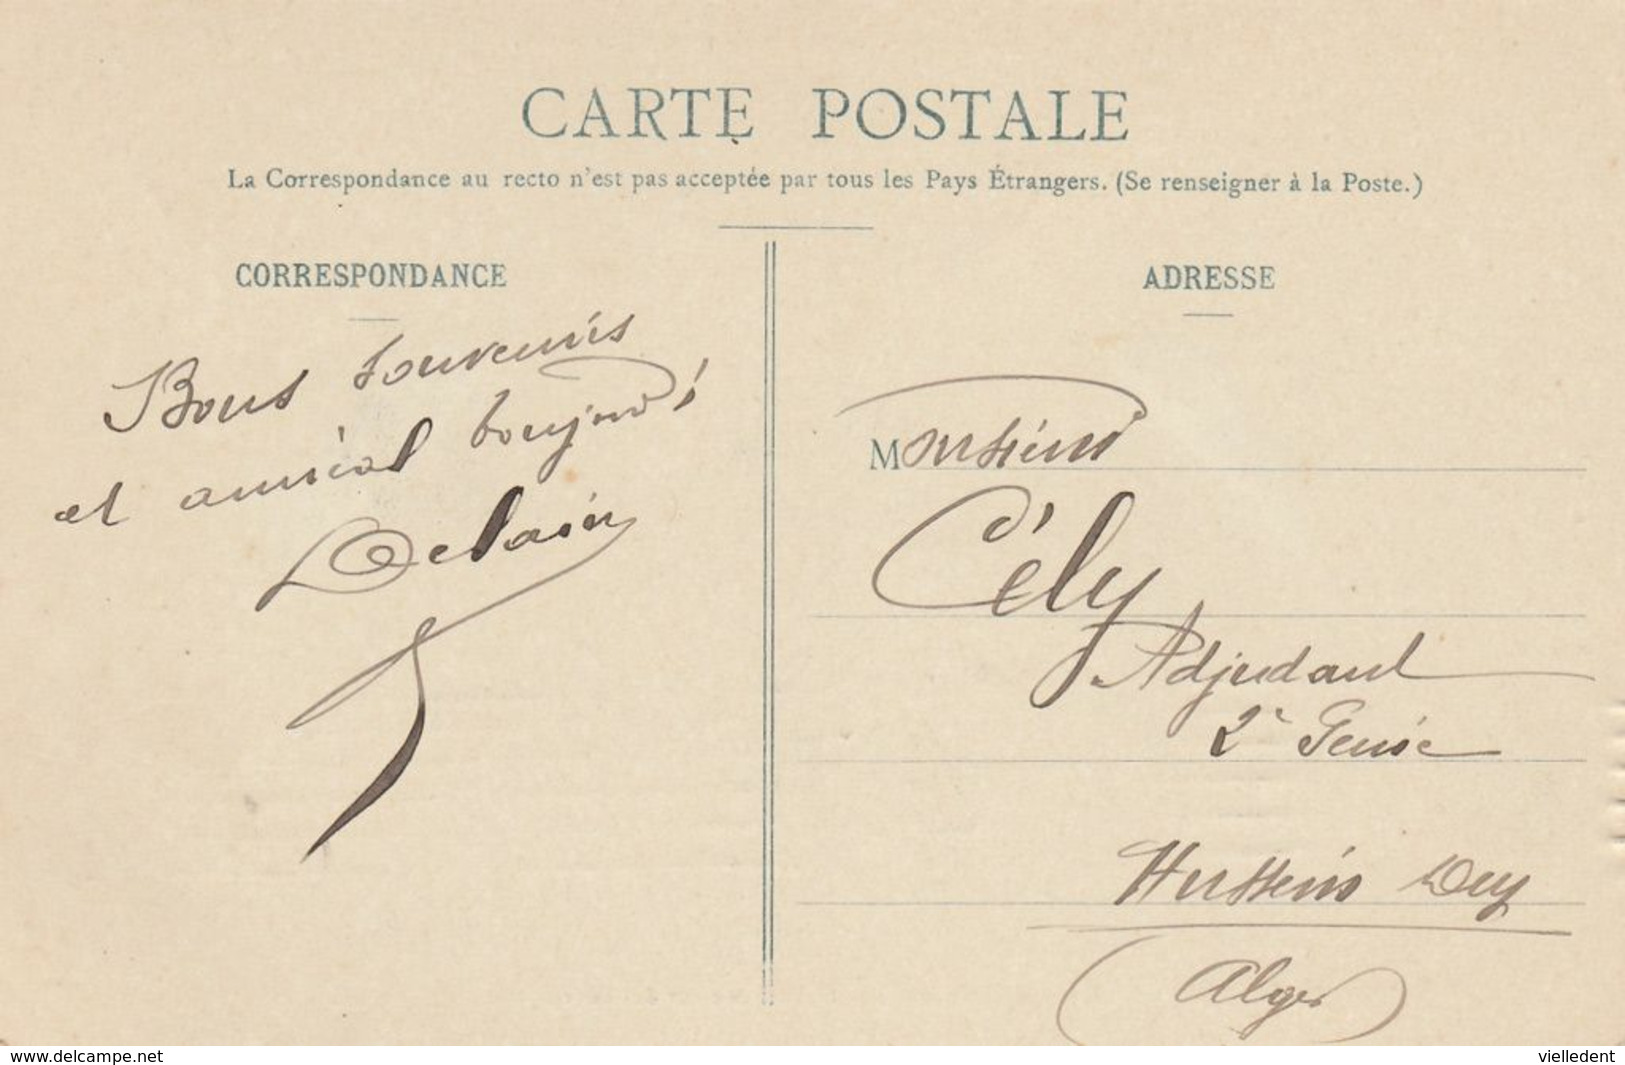 CARTE POSTALE
La Correspondance au recto n'est pas acceptée par tous les Pays Étrangers. (Se renseigner à la Poste.)
CORRESPONDANCE
Bons souvenirs
et amical bonjour!
Delain
ADRESSE
Monsieur
Cély
Adjudant
2e Génie
Hussein Dey
Alger
www.delcampe.net
vielledent